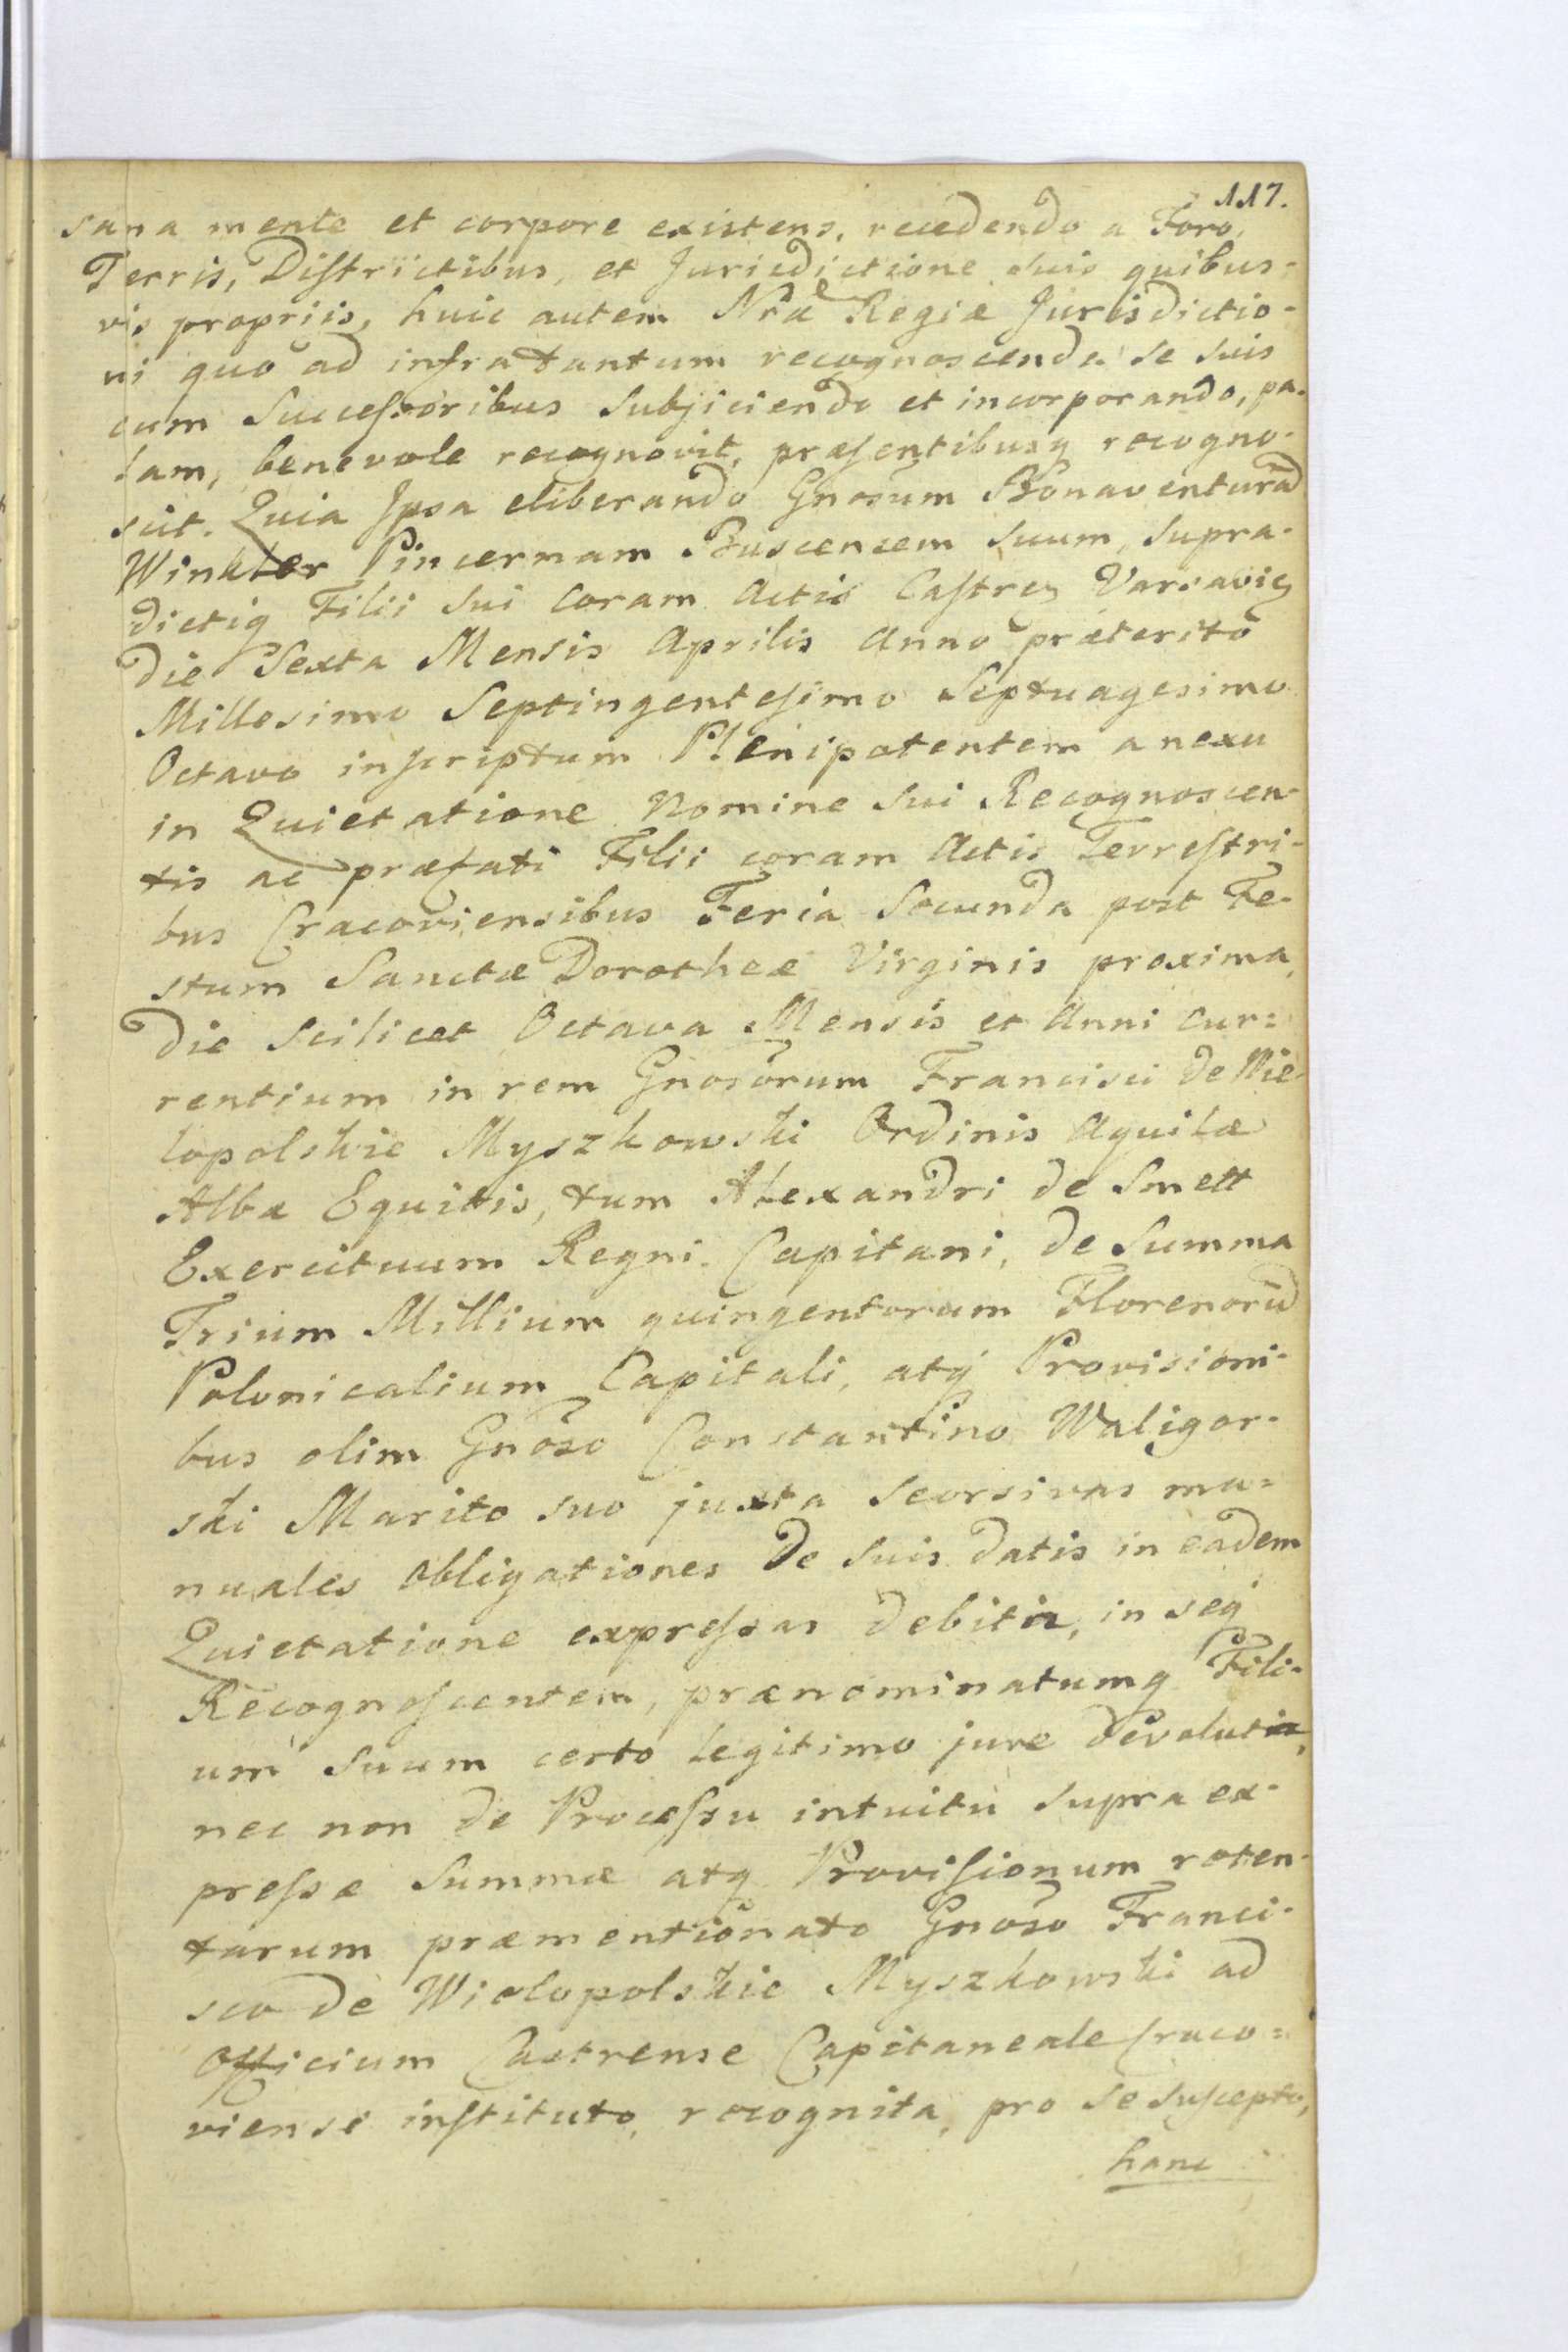 117.
sana mente et corpore existens, recedendo a Foro,
Terris, Diſtrictibus, et Jurisdictione suis quibus-
vis propriis, huic autem Nrae Regiæ Jurisdictio-
ni quo ad infra tantum recognoscenda se suis
cum Succeſsoribus Subjiciendo et incorporando, pa-
lam, benevole recognovit, præſentibusq recogno-
scit. Quia Ipsa eliberando Gnosum Bonaventurā
Winkler Pincernam Buscensem suum, supra-
dictiq Filii sui Coram Actis Caſtren Varsavien
die Sexta Mensis Aprilis Anno præterito
Millesimo Septingenteſimo Septuagesimo
Octavo inſcriptum Plenipotentem a nexu
in Quietatione Nomine sui Recognoscen-
tis ac præfati Filii coram Actis Terreſtri-
bus Cracoviensibus Feria Secunda post Fe-
stum Sanctæ Dorotheæ Virginis proxima,
die Scilicet Octava Mensis et Anni Cur=
rentium in rem Gnosorum Francisci de Wie-
lopolskie Myszkowski Ordinis Aquilæ
Albæ Equitis, tum Alexandri de Smett
Exercituum Regni Capitani, de Summa
Trium Millium quingentorum Florenorū
Polonicalium Capitali, atq Provisioni-
bus olim Gnõso Constantino Waligor-
ski Marito suo juxta Seorsivas ma=
nuales Obligationes de suis datis in eadem
Quietatione expreſsas debitis, in seq
Recognoſcentem, prænominatumq Fili-
um suum certo legitimo jure devolutis,
nec non de Proceſsu intuitu supra ex-
preſsæ Summæ atq Proviſionum reten-
tarum præmentionato Gnõso Franci-
sco de Wielopolskie Myszkowski ad
Officium Castrense Capitaneale Craco=
viense inſtituto, recognita, pro se suſcepto,
hanc